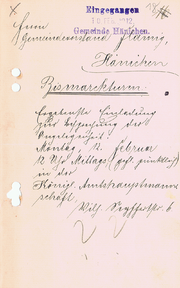 Eingegangen
10 FEB. 1912
Gemeinde Hänichen.
Herrn
Gemeindevorstand
Hänichen
Bismarckturm.
Ergebenste Einladung
zur Besprechung der
Angelegenheit:
Montag, 12. Februar
12 Uhr Mittags (gefl. pünktlich)
in der
Königl. Amtshauptmann-
schaft,
Wilh. Seyfferthstr. 6